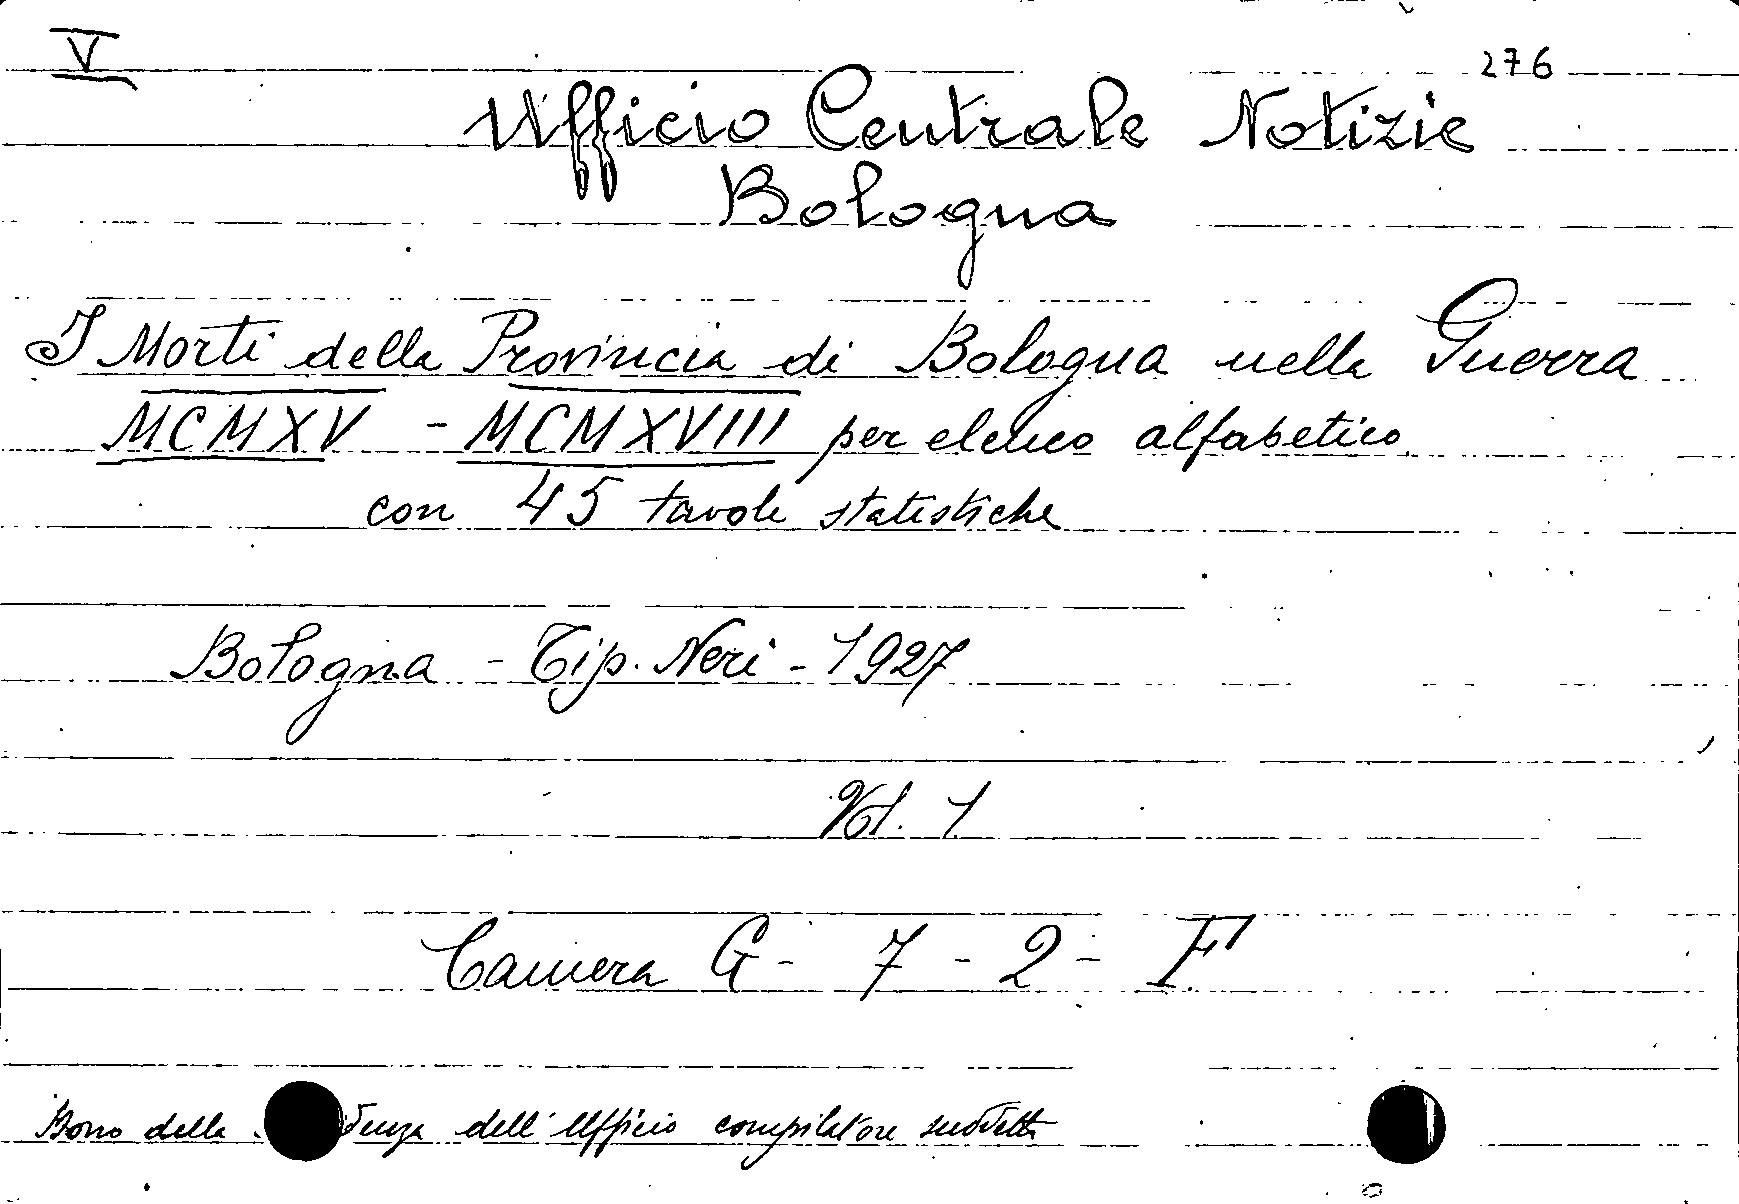 V
276
Ufficio Centrale Notizie
Bologna
I Morti della Provincia di Bologna nella Guerra
MCMXV - MCMXVIII per elenco alfabetico
con 45 tavole statistiche
Bologna - Tip. Neri - 1927
Vol. 1
Camera G - 7 - 2 - F
della dell'Ufficio compilatore suddetto